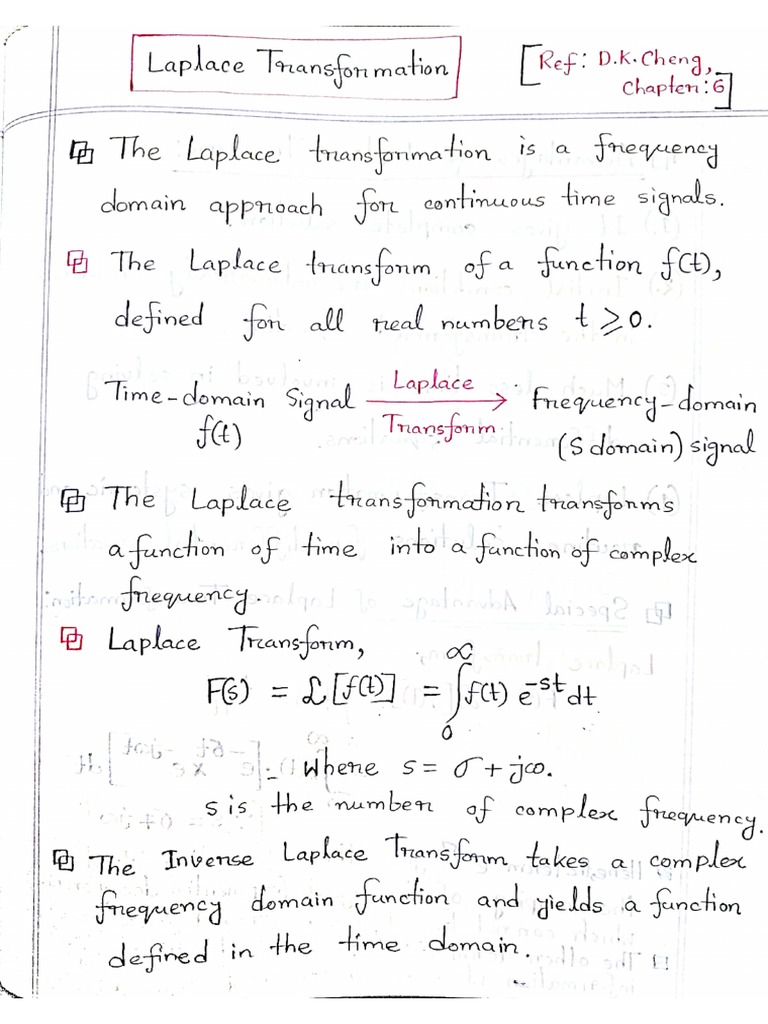 Laplace Transformation
[Ref: D.K.Cheng,
Chapter:6]
The Laplace transformation is a frequency
domain approach for continuous time signals.
The Laplace transform of a function f(t),
defined for all real numbers t ≥ 0.
Time-domain Signal Laplace Frequency-domain
f(t) Transform (S domain) signal
The Laplace transformation transforms
a function of time into a function of complex
frequency.
Laplace Transform,
F(s) = ℒ[f(t)] = ∫₀^∞ f(t) e^-st dt
where s = σ + jω.
s is the number of complex frequency.
The Inverse Laplace Transform takes a complex
frequency domain function and yields a function
defined in the time domain.